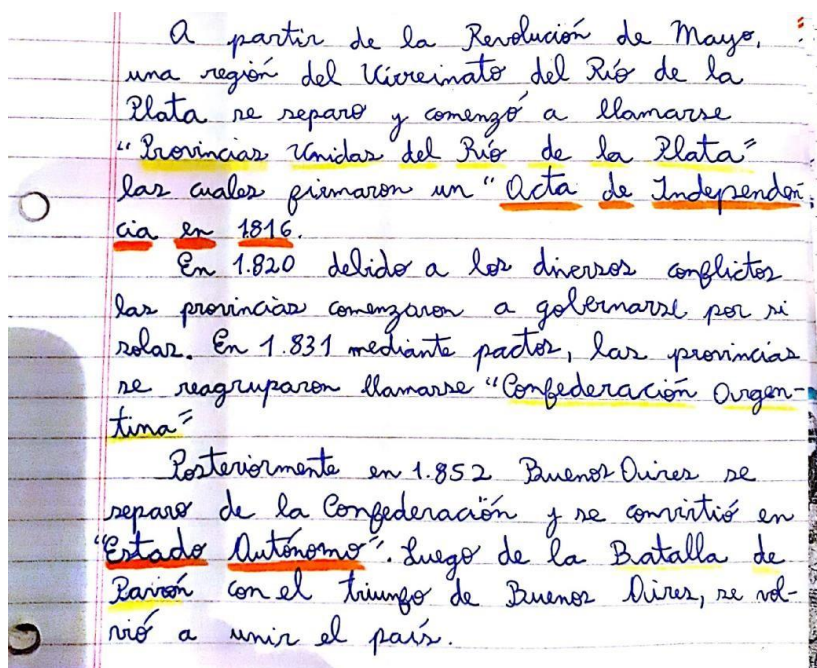 A partir de la Revolución de Mayo,
una región del Virreinato del Río de la
Plata se separo y comenzó a llamarse
"Provincias Unidas del Río de la Plata"
las cuales firmaron un "Acta de Independen
cia en 1816.
En 1.820 debido a los diversos conflictos
las provincias comenzaron a gobernarse por si
solas. En 1.831 mediante pactos, las provincias
se reagruparon llamarse "Confederación Argen-
tina"
Posteriormente en 1.852 Buenos Aires se
separo de la Confederación y se convirtió en
"Estado Autónomo". Luego de la Batalla de
Pavón con el triunfo de Buenos Aires, se vol-
vió a unir el país.